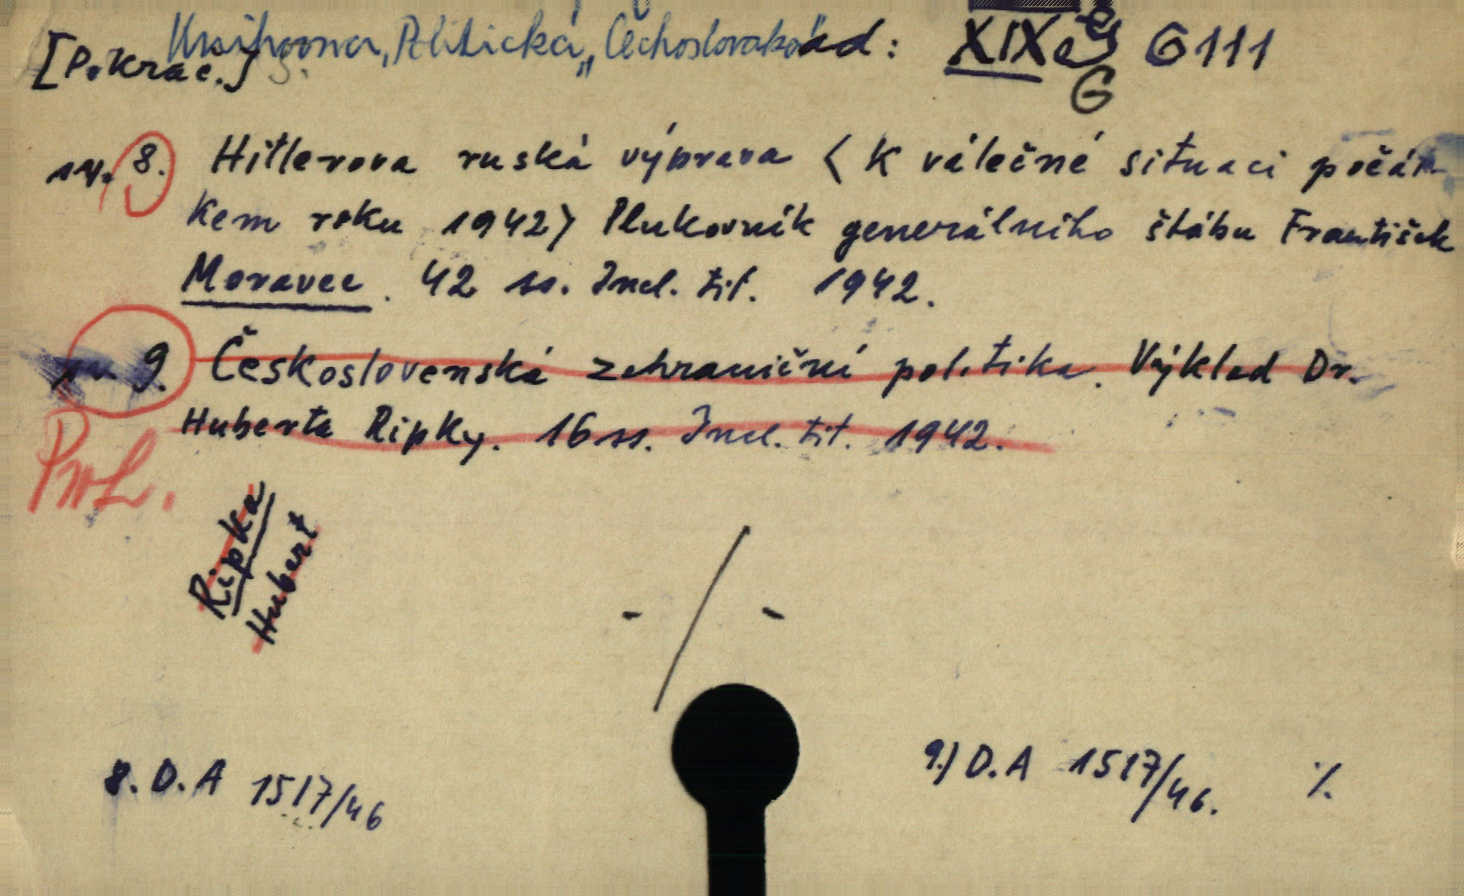 Knihovna „Politická" Čechoslovaka ad: XIX G 111
[Pokrač.] G
sv. 8. Hitlerova ruská výprava < K válečné situaci počát-
kem roku 1942> Plukovník generálního štábu František
Moravec. 42 ss. Incl. tit. 1942.
9. Československá zahraniční politika. Výklad Dr.
Huberta Ripky. 16 ss. Incl. tit. 1942.
Ripka
Hubert
-/-
8. D.A 1517/46
9.) D.A 1517/46. ./.